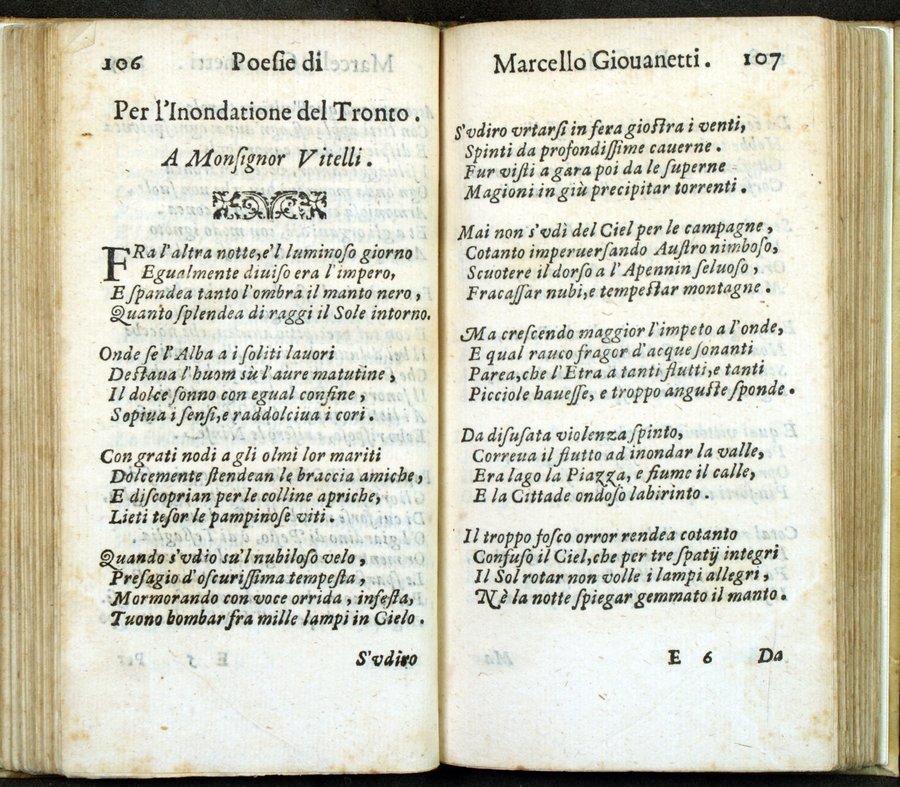 106 Poesie di
Per l'Inondatione del Tronto.
A Monsignor Vitelli.
FRa l'altra notte, e'l luminoso giorno
Egualmente diuiso era l'impero,
E spandea tanto l'ombra il manto nero,
Quanto splendea di raggi il Sole intorno.
Onde se l'Alba a i soliti lauori
Destaua l'huom sù l'aure matutine,
Il dolce sonno con egual confine,
Sopiua i sensi, e raddolciua i cori.
Con grati nodi a gli olmi lor mariti
Dolcemente stendean le braccia amiche,
E discoprian per le colline apriche,
Lieti tesor le pampinose viti.
Quando s'vdio su'l nubiloso velo,
Presagio d'oscurissima tempesta,
Mormorando con voce orrida, infesta,
Tuono bombar fra mille lampi in Cielo.
S'vdiro
Marcello Giouanetti. 107
S'vdiro vrtarsi in fera giostra i venti,
Spinti da profondissime cauerne.
Fur visti a gara poi da le superne
Magioni in giù precipitar torrenti.
Mai non s'vdì del Ciel per le campagne,
Cotanto imperuersando Austro nimboso,
Scuotere il dorso a l'Apennin seluoso,
Fracassar nubi, e tempestar montagne.
Ma crescendo maggior l'impeto a l'onde,
E qual rauco fragor d'acque sonanti
Parea, che l'Etra a tanti flutti, e tanti
Picciole hauesse, e troppo anguste sponde.
Da disusata violenza spinto,
Correua il flutto ad inondar la valle,
Era lago la Piazza, e fiume il calle,
E la Cittade ondoso labirinto.
Il troppo fosco orror rendea cotanto
Confuso il Ciel, che per tre spatij integri
Il Sol rotar non volle i lampi allegri,
Nè la notte spiegar gemmato il manto.
E 6 Da